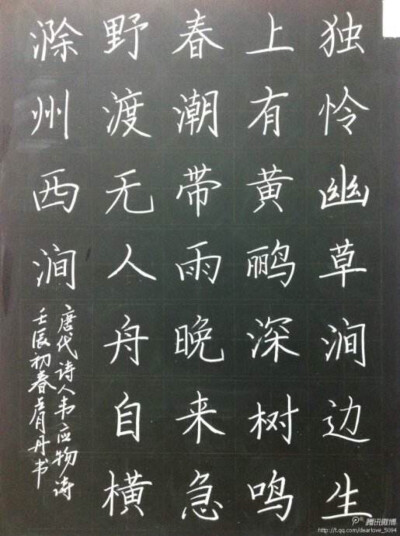 独怜幽草涧边生
上有黄鹂深树鸣
春潮带雨晚来急
野渡无人舟自横
滁州西涧
唐代诗人韦应物诗
壬辰初春肖丹书
腾讯微博
http://t.qq.com/dearlove_5094